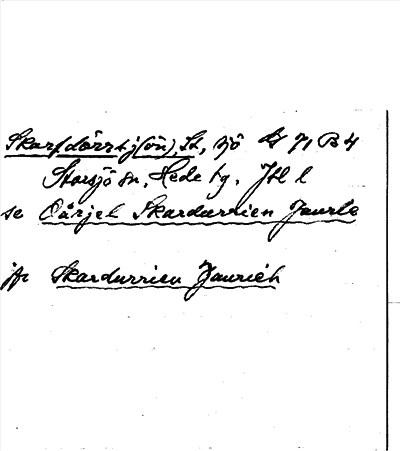 Skarfdörrtj(ön), St, sjö Bl 71 B 4
Storsjö sn, Hede tg, Jtl l
se Oårjel Skardurrien Jaurie
jfr Skardurrien Jaurieh